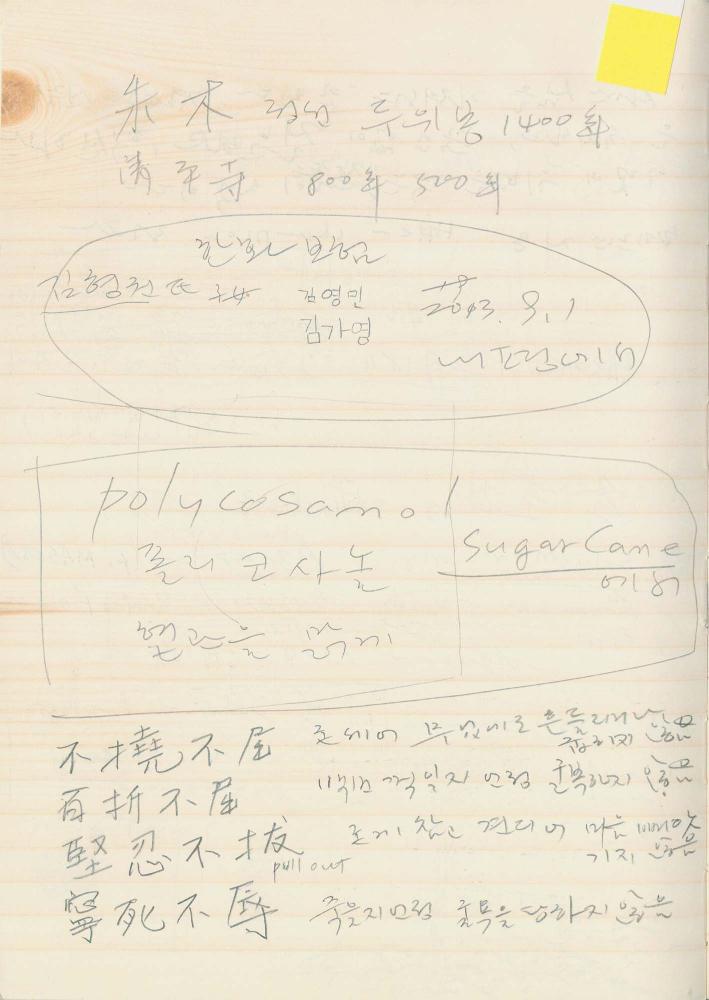 朱木 정선 두위봉 1400年
淸平寺 800年 500年
한화 보험
김형권 氏 子女 김영민 2013. 9. 1
김가영
서프라이에서
polycosamol
폴리코사놀
Sugar Cane
에서
혈관을 맑게
不撓不屈
굳세어 무엇에도 흔들리거나
굽히지 않음
百折不屈
백번 꺾일지언정 굴복하지 않음
堅忍不拔
pull out
굳게 참고 견디어 마음 빼앗
기지 않음
寧死不辱 죽을지언정 굴욕을 당하지 않음